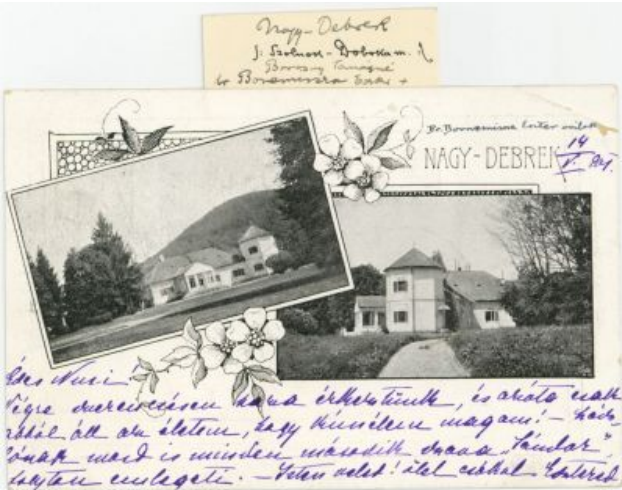 Nagy-Debrek
Szolnok-Doboka m.
Bornemissza
Br. Bornemissza Eszter
NAGY-DEBREK
14
V. 901.
Édes Nusi!
Végre szerencsésen haza érkeztünk, és azóta csak
abból áll az életem, hogy kímélem magam! –
majd is minden második szava „Sándor",
folyton emlegeti. – Isten veled! ölel csókol Esztered